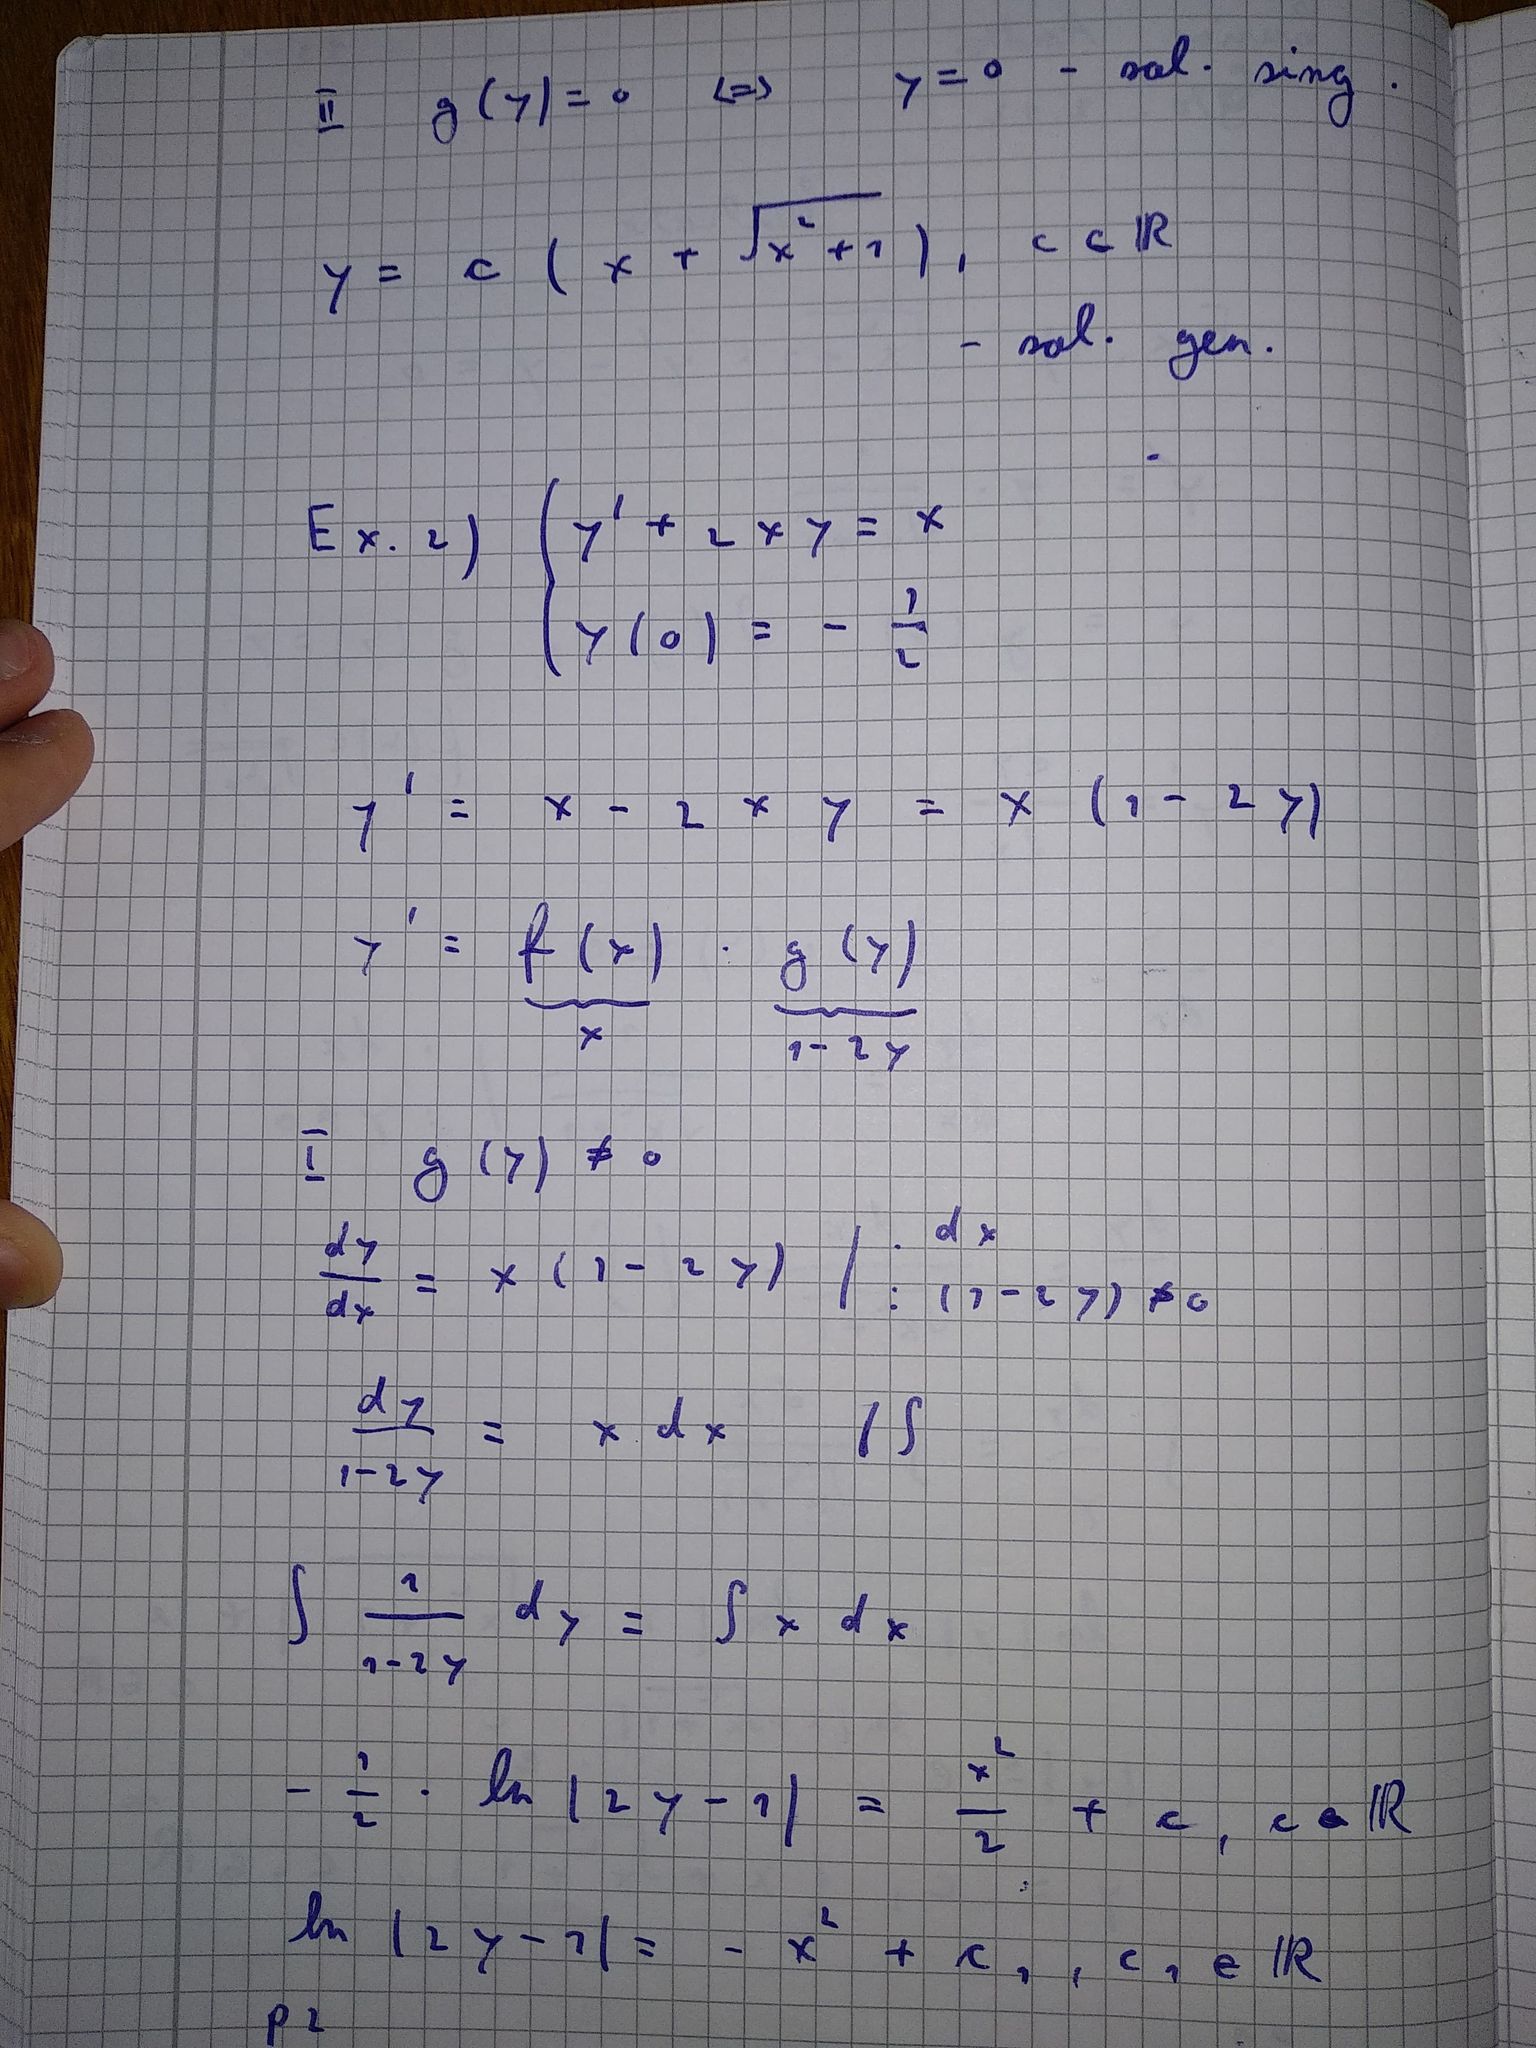 II g(y)=0 <=> y=0 - sol. sing.
y = c (x + √(x²+1)), c ∈ ℝ
- sol. gen.
Ex. 2) { y' + 2xy = x
y(0) = - 1/2
y' = x - 2xy = x (1-2y)
y' = f(x) · g(y)
x 1-2y
I g(y) ≠ 0
dy/dx = x(1-2y) | · dx
: (1-2y) ≠ 0
dy/(1-2y) = x dx |∫
∫ 1/(1-2y) dy = ∫ x dx
- 1/2 · ln |2y-1| = x²/2 + c, c ∈ ℝ
ln |2y-1| = - x² + c₁, c₁ ∈ ℝ
p2